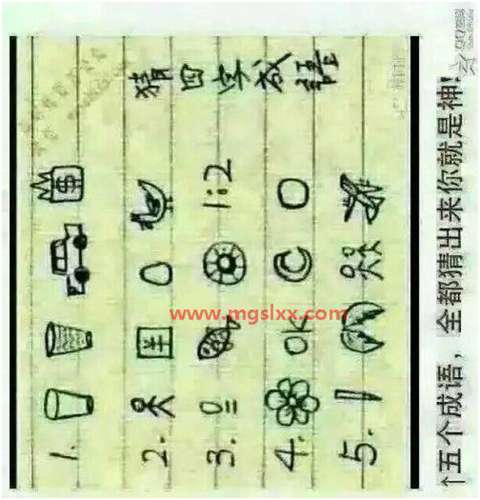 猜四字成語
1.
$
2.
3.
1:2
4.
OK
5.
www.mgslxx.com
↑五个成语，全都猜出来你就是神!